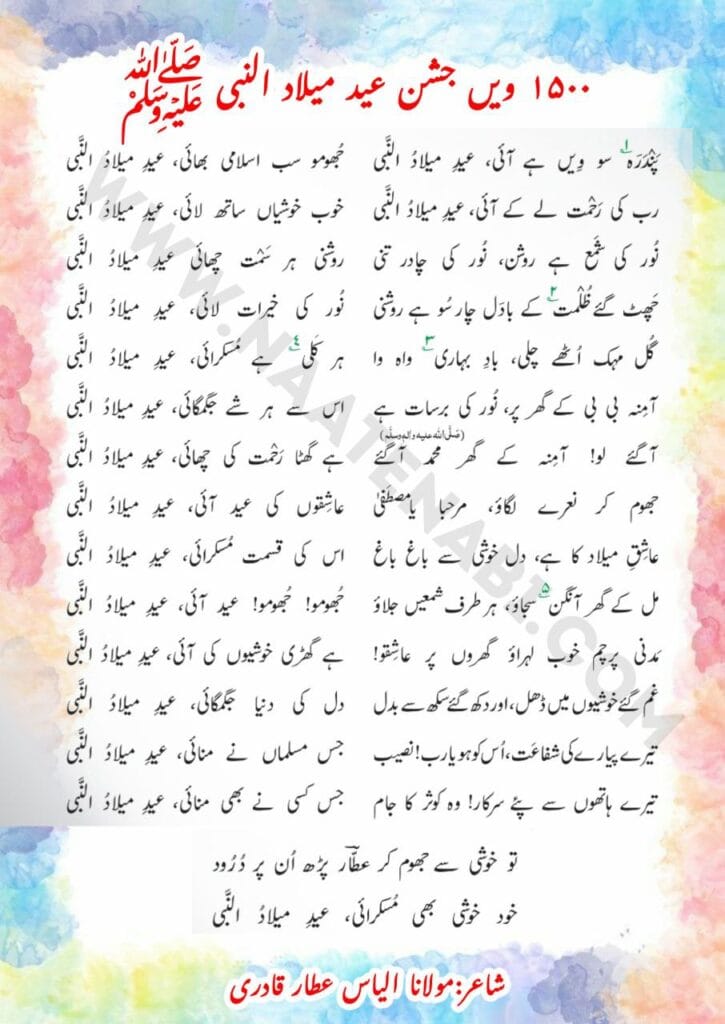 ۱۵۰۰ ویں جشن عید میلاد النبی صَلَّی اللہ عَلَیْہِ وَسَلَّمْ
پَنْدَرَہ۱ سو وِیں ہے آئی، عیدِ میلادُ النَّبی جُھومو سب اسلامی بھائی، عیدِ میلادُ النَّبی
رب کی رَحْمت لے کے آئی، عیدِ میلادُ النَّبی خوب خوشیاں ساتھ لائی، عیدِ میلادُ النَّبی
نُور کی شَمْع ہے روشن، نُور کی چادر تنی روشنی ہر سَمْت چھائی عیدِ میلادُ النَّبی
چَھٹ گئے ظُلْمت۲ کے بادَل چار سُو ہے روشنی نُور کی خیرات لائی، عیدِ میلادُ النَّبی
گُل مہک اُٹھے چلی، بادِ بہاری۳ واہ وا ہر کَلی۴ ہے مُسکرائی، عیدِ میلادُ النَّبی
آمِنہ بی بی کے گھر پر، نُور کی برسات ہے اس سے ہر شے جگمگائی، عیدِ میلادُ النَّبی
آگئے لو! آمِنہ کے گھر محمد (صَلَّی اللہ علیہ واٰلہٖ وسلَّم) آگئے ہے گھٹا رَحْمت کی چھائی، عیدِ میلادُ النَّبی
جھوم کر نعرے لگاؤ، مرحبا یا مصطَفٰے عاشِقوں کی عید آئی، عیدِ میلادُ النَّبی
عاشِقِ میلاد کا ہے، دل خوشی سے باغ باغ اس کی قسمت مُسکرائی، عیدِ میلادُ النَّبی
مل کے گھر آنگن۵ سجاؤ، ہر طرف شمعیں جلاؤ جُھومو! جُھومو! عید آئی، عیدِ میلادُ النَّبی
مَدنی پرچم خوب لہراؤ گھروں پر عاشقو! ہے گھڑی خوشیوں کی آئی، عیدِ میلادُ النَّبی
غم گئے خوشیوں میں ڈھل، اور دکھ گئے سکھ سے بدل دل کی دنیا جگمگائی، عیدِ میلادُ النَّبی
تیرے پیارے کی شفاعَت، اُس کو ہو یارب! نصیب جس مسلماں نے منائی، عیدِ میلادُ النَّبی
تیرے ہاتھوں سے پئے سرکار! وہ کوثر کا جام جس کسی نے بھی منائی، عیدِ میلادُ النَّبی
تو خوشی سے جھوم کر عطّاؔر پڑھ اُن پر دُرُود
خود خوشی بھی مُسکرائی، عیدِ میلادُ النَّبی
شاعر: مولانا الیاس عطار قادری
WWW.NAATENABI.COM